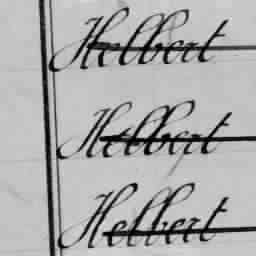 Helbert
Helbert
Helbert